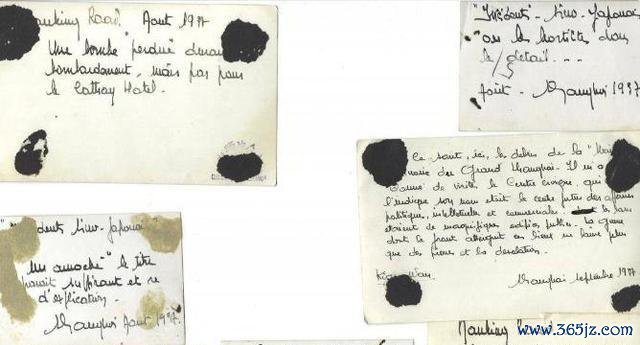 Nanking Road. Août 1937
Une bombe "perdue" durant
bombardement, mais pas pour
le Cathay Hotel.
"Incidents" Sino-Japonais
ou les hostilités dans
le détail...
Août - Shanghai 1937
Ce sont, ici, les débris de la
mairie du Grand Shanghai. Il m'a
donné de visiter le Centre civique, qui
l'indique son nom était le centre futur des affaires
politiques, intellectuelles et commerciales.
étaient de magnifiques édifices publics. La guerre
dont le front atteignit ces lieux ne laisse plus
que des pierres et la désolation.
Kiang Wan.
Shanghai septembre 1937
"Incidents Sino-Japonais"
"Un amoché" le titre
paraît suffisant et
d'explication.
Shanghai Août 1937.
Nanking
www.365jz.com